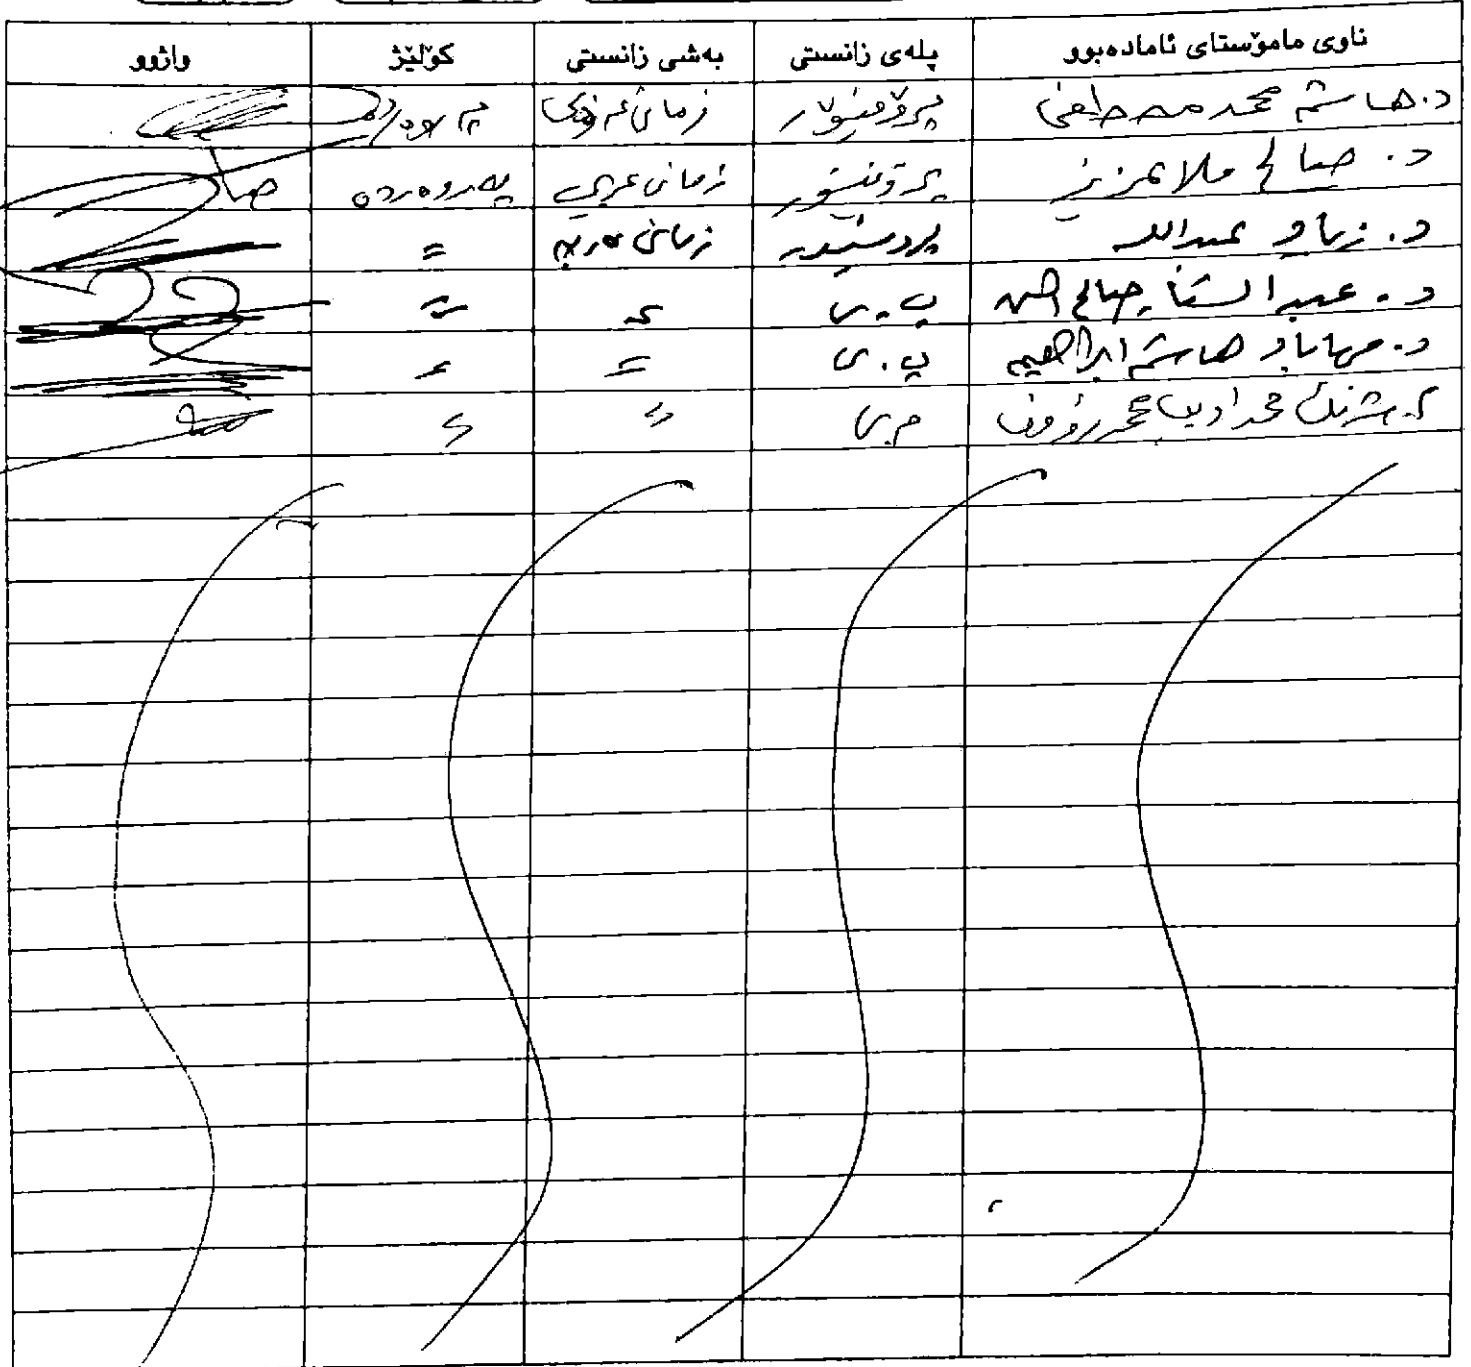 ناوی مامۆستای ئامادەبوو پلەی زانستی بەشی زانستی کۆلێژ واژوو
د. هاشم محمد مصطفى پرۆفیسۆر زمانی عەرەبی پەروەردە
د. صالح ملا عزيز پرۆفیسۆر زمانی عربي پەروەردە
د. زياد عبدالله پرۆفیسۆر زمانی عەرەبی =
د. عبدالستار صالح پ.ی = =
د. مهاباد هاشم ابراهيم پ.ی = =
محمد اديب محمد رؤوف م.ی = =